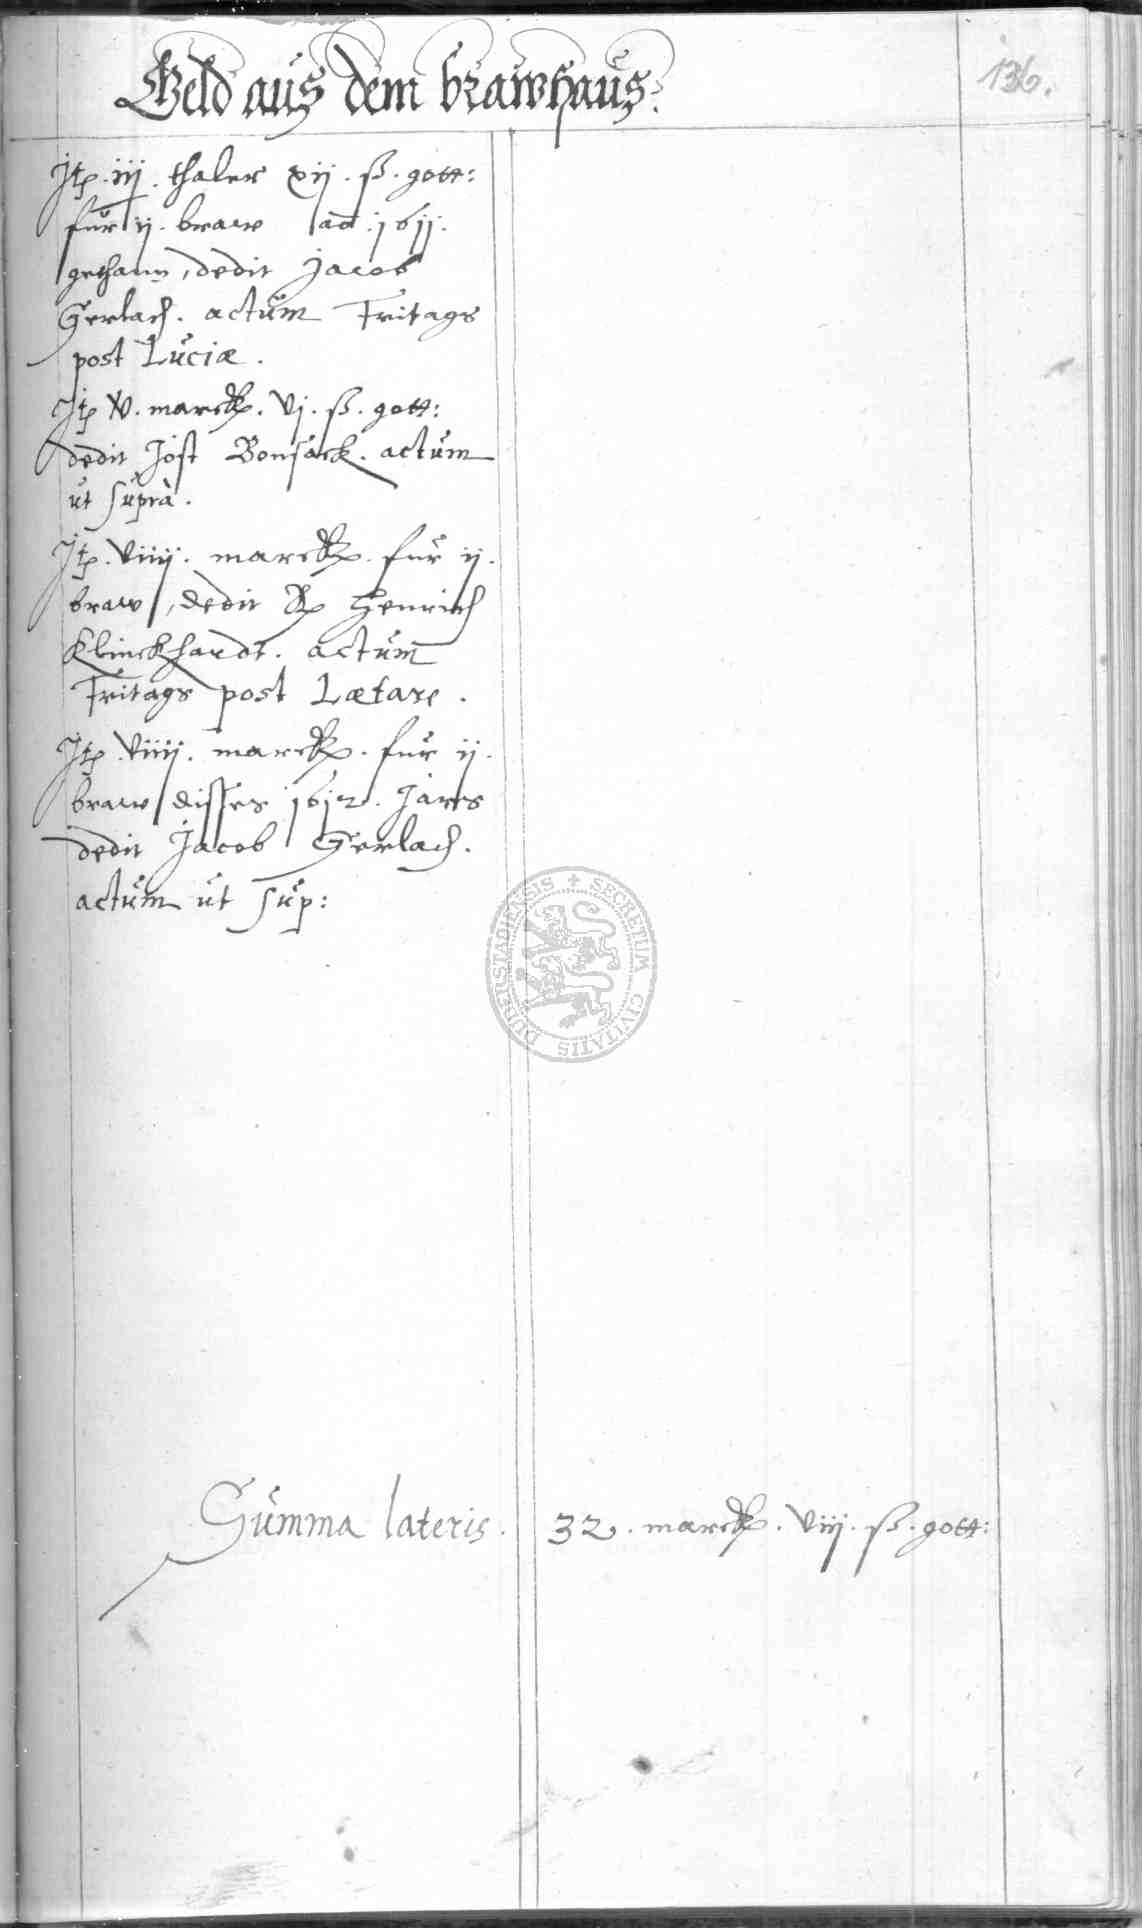 Geld aus dem brawhaus.
136.
Jtp. iij. thaler xij. ß. gott:
für ij. braw ao. 1611.
gethann, dedit Jacob
Gerlach. actum Fritags
post Luciæ.
Jtp marckp. vj. ß. gott:
dedit Jost Bonsack. actum
ut suprà.
Jtp. viiij. marckp. für ij.
braw, dedit Henrich
Klinckhardt. actum
Fritags post Lætare.
Jtp. viiij. marckp. für ij.
braw disses 1612. Jars
dedit Jacob Gerlach.
actum ut sup:
SECRETUM CIVITATIS DUDERSTADIENSIS
Summa lateris. 32. marckp. viij. ß. gott: